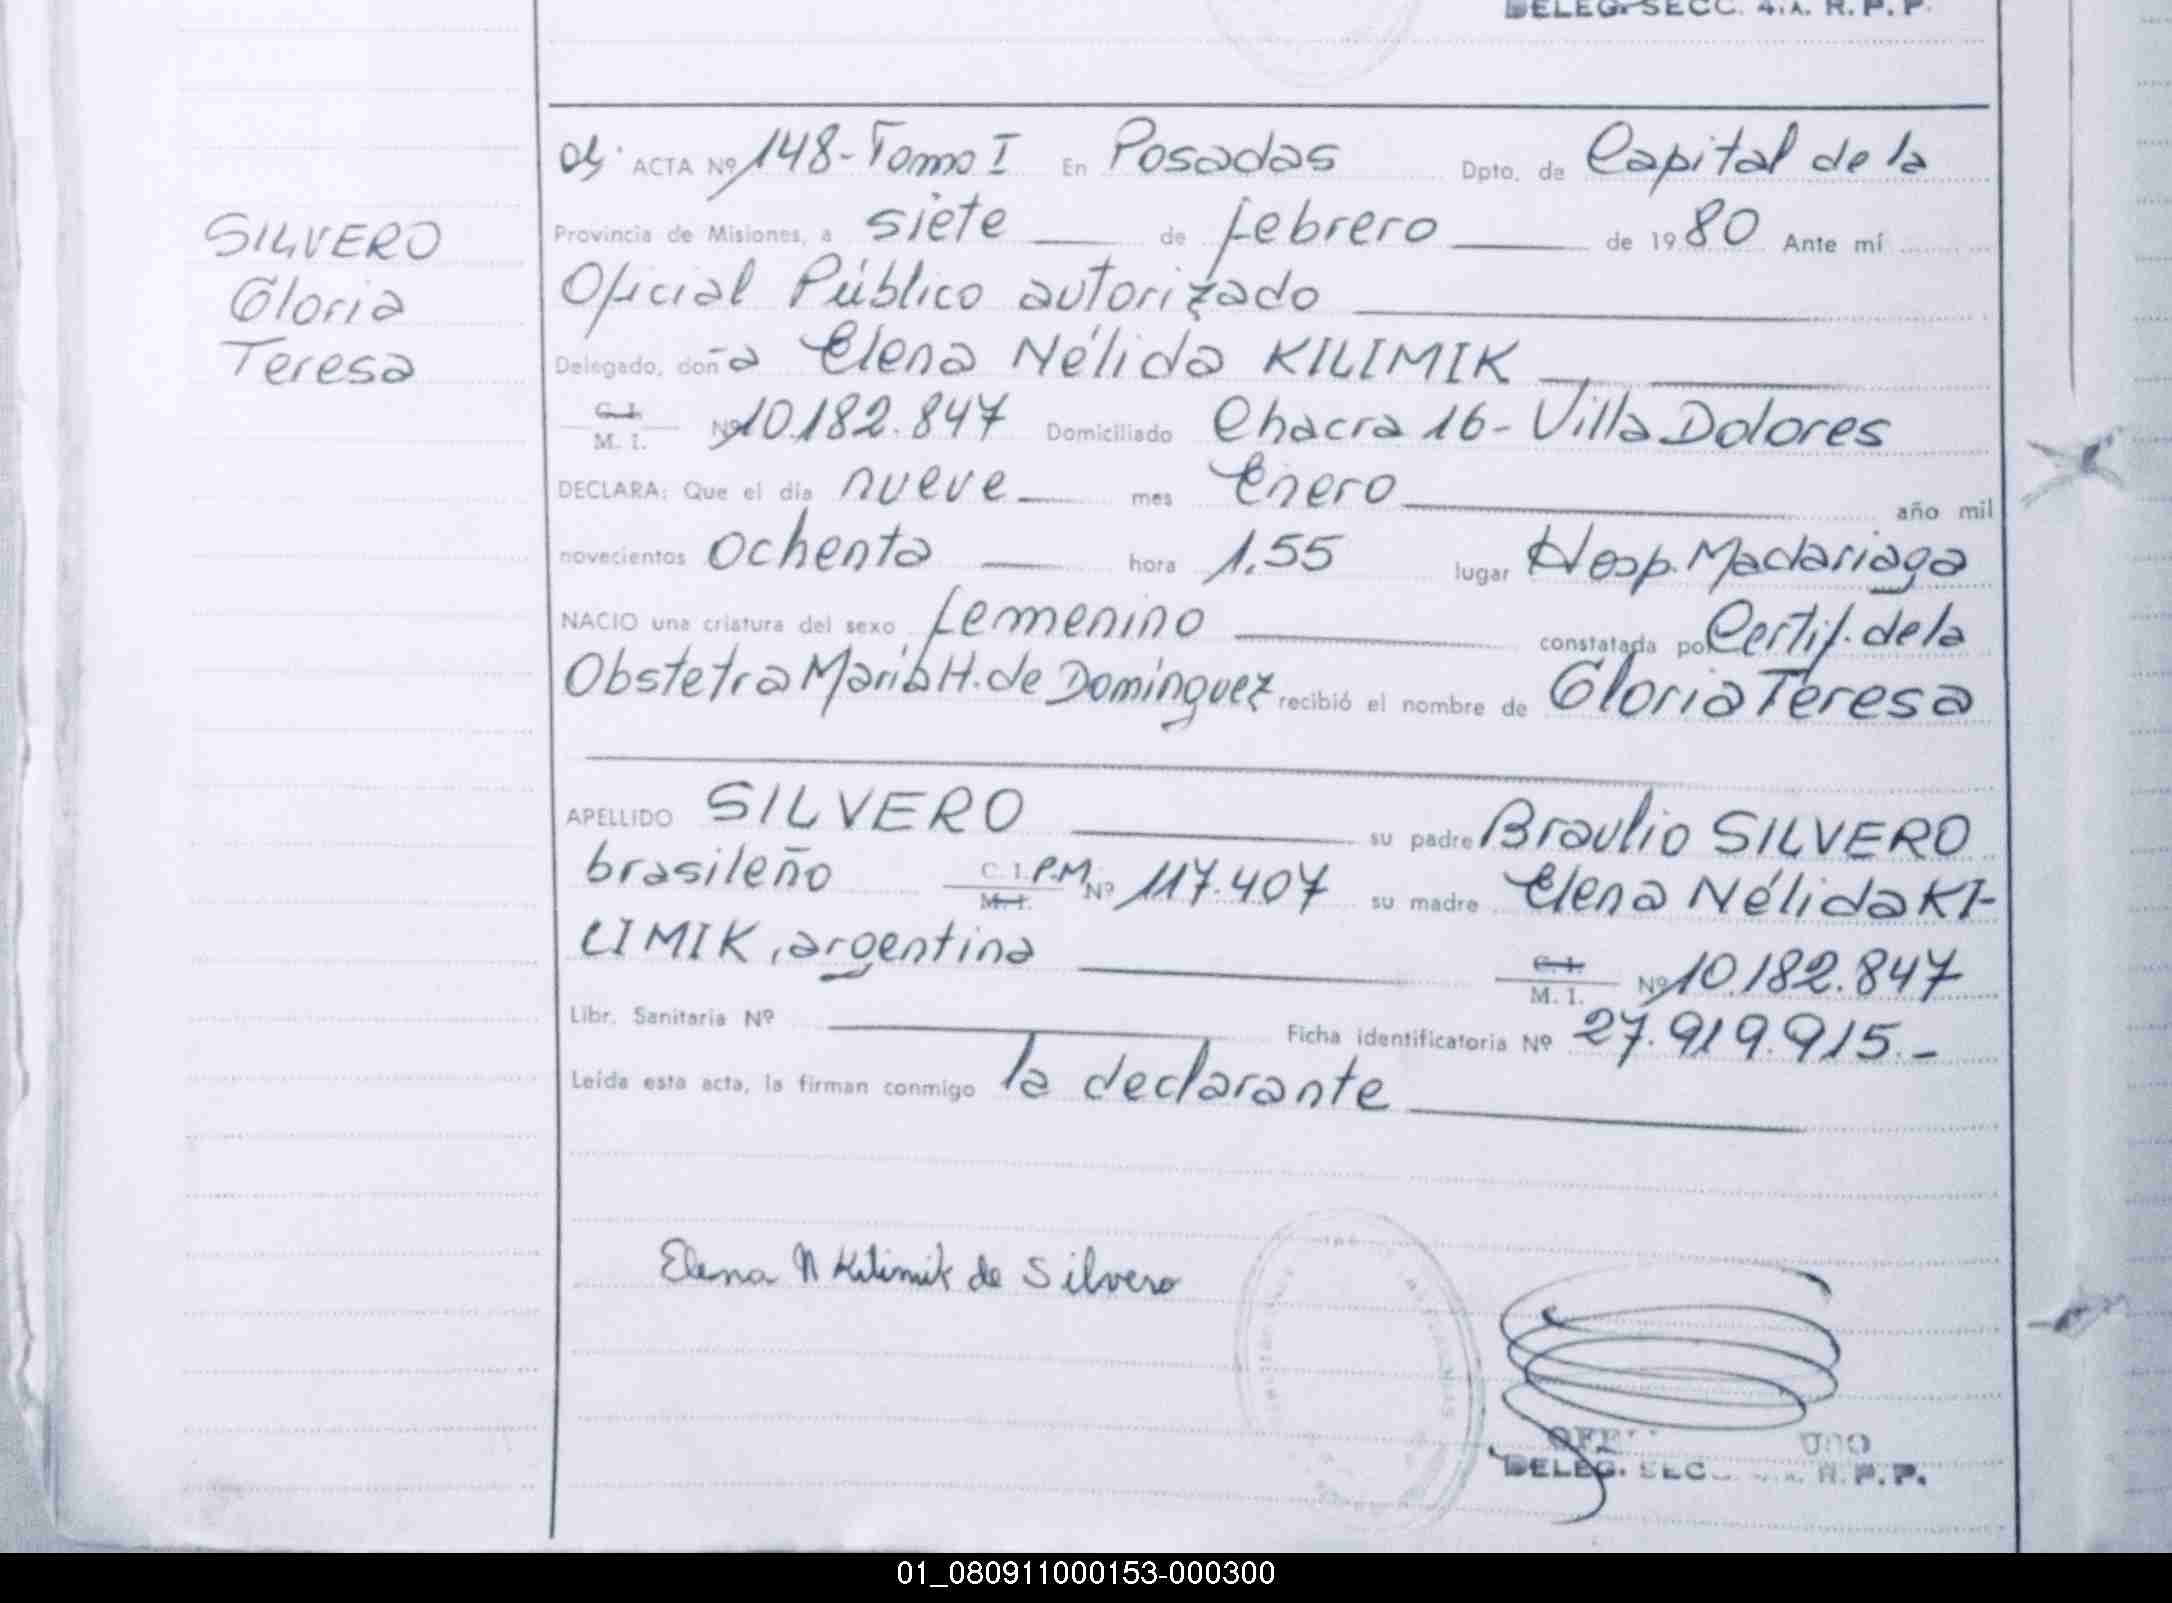 DELEG. SECC. 4.A. R.P.P.
SILVERO
Gloria
Teresa
ACTA Nº 148-Tomo I En Posadas Dpto. de Capital de la
Provincia de Misiones, a siete de febrero de 1980 Ante mí
Oficial Público autorizado
Delegado, doña Elena Nélida KILIMIK
C. I.
M. I. Nº 10.182.847 Domiciliado Chacra 16 - Villa Dolores
DECLARA: Que el día nueve mes Enero año mil
novecientos ochenta hora 1.55 lugar Hosp. Madariaga
NACIO una criatura del sexo femenino constatada por Certif. de la
Obstetra María H. de Domínguez recibió el nombre de Gloria Teresa
APELLIDO SILVERO su padre Braulio SILVERO
brasileño C. I. P.M. Nº 117.407 su madre Elena Nélida KI-
M. I.
LIMIK, argentina C. I.
M. I. Nº 10.182.847
Libr. Sanitaria Nº Ficha identificatoria Nº 27.919.915.-
Leída esta acta, la firman conmigo la declarante
Elena N Kilimik de Silvero
DELEG. SECC. R.P.P.
01_080911000153-000300